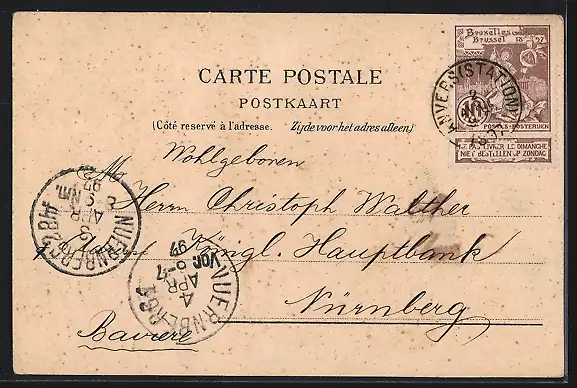 Bruxelles
Brussel 1897
CARTE POSTALE
POSTKAART
(Côté reservé à l'adresse. Zijde voor het adres alleen)
ANVERS (STATION)
10
POSTES-POSTERIJEN
NE PAS LIVRER LE DIMANCHE
NIET BESTELLEN OP ZONDAG
Wohlgeboren
Herrn Christoph Walther
Königl. Hauptbank
Nürnberg
Bavière
NUERNBERG
3
APR
97
NUERNBERG
4
APR
Vor. 6-7
97